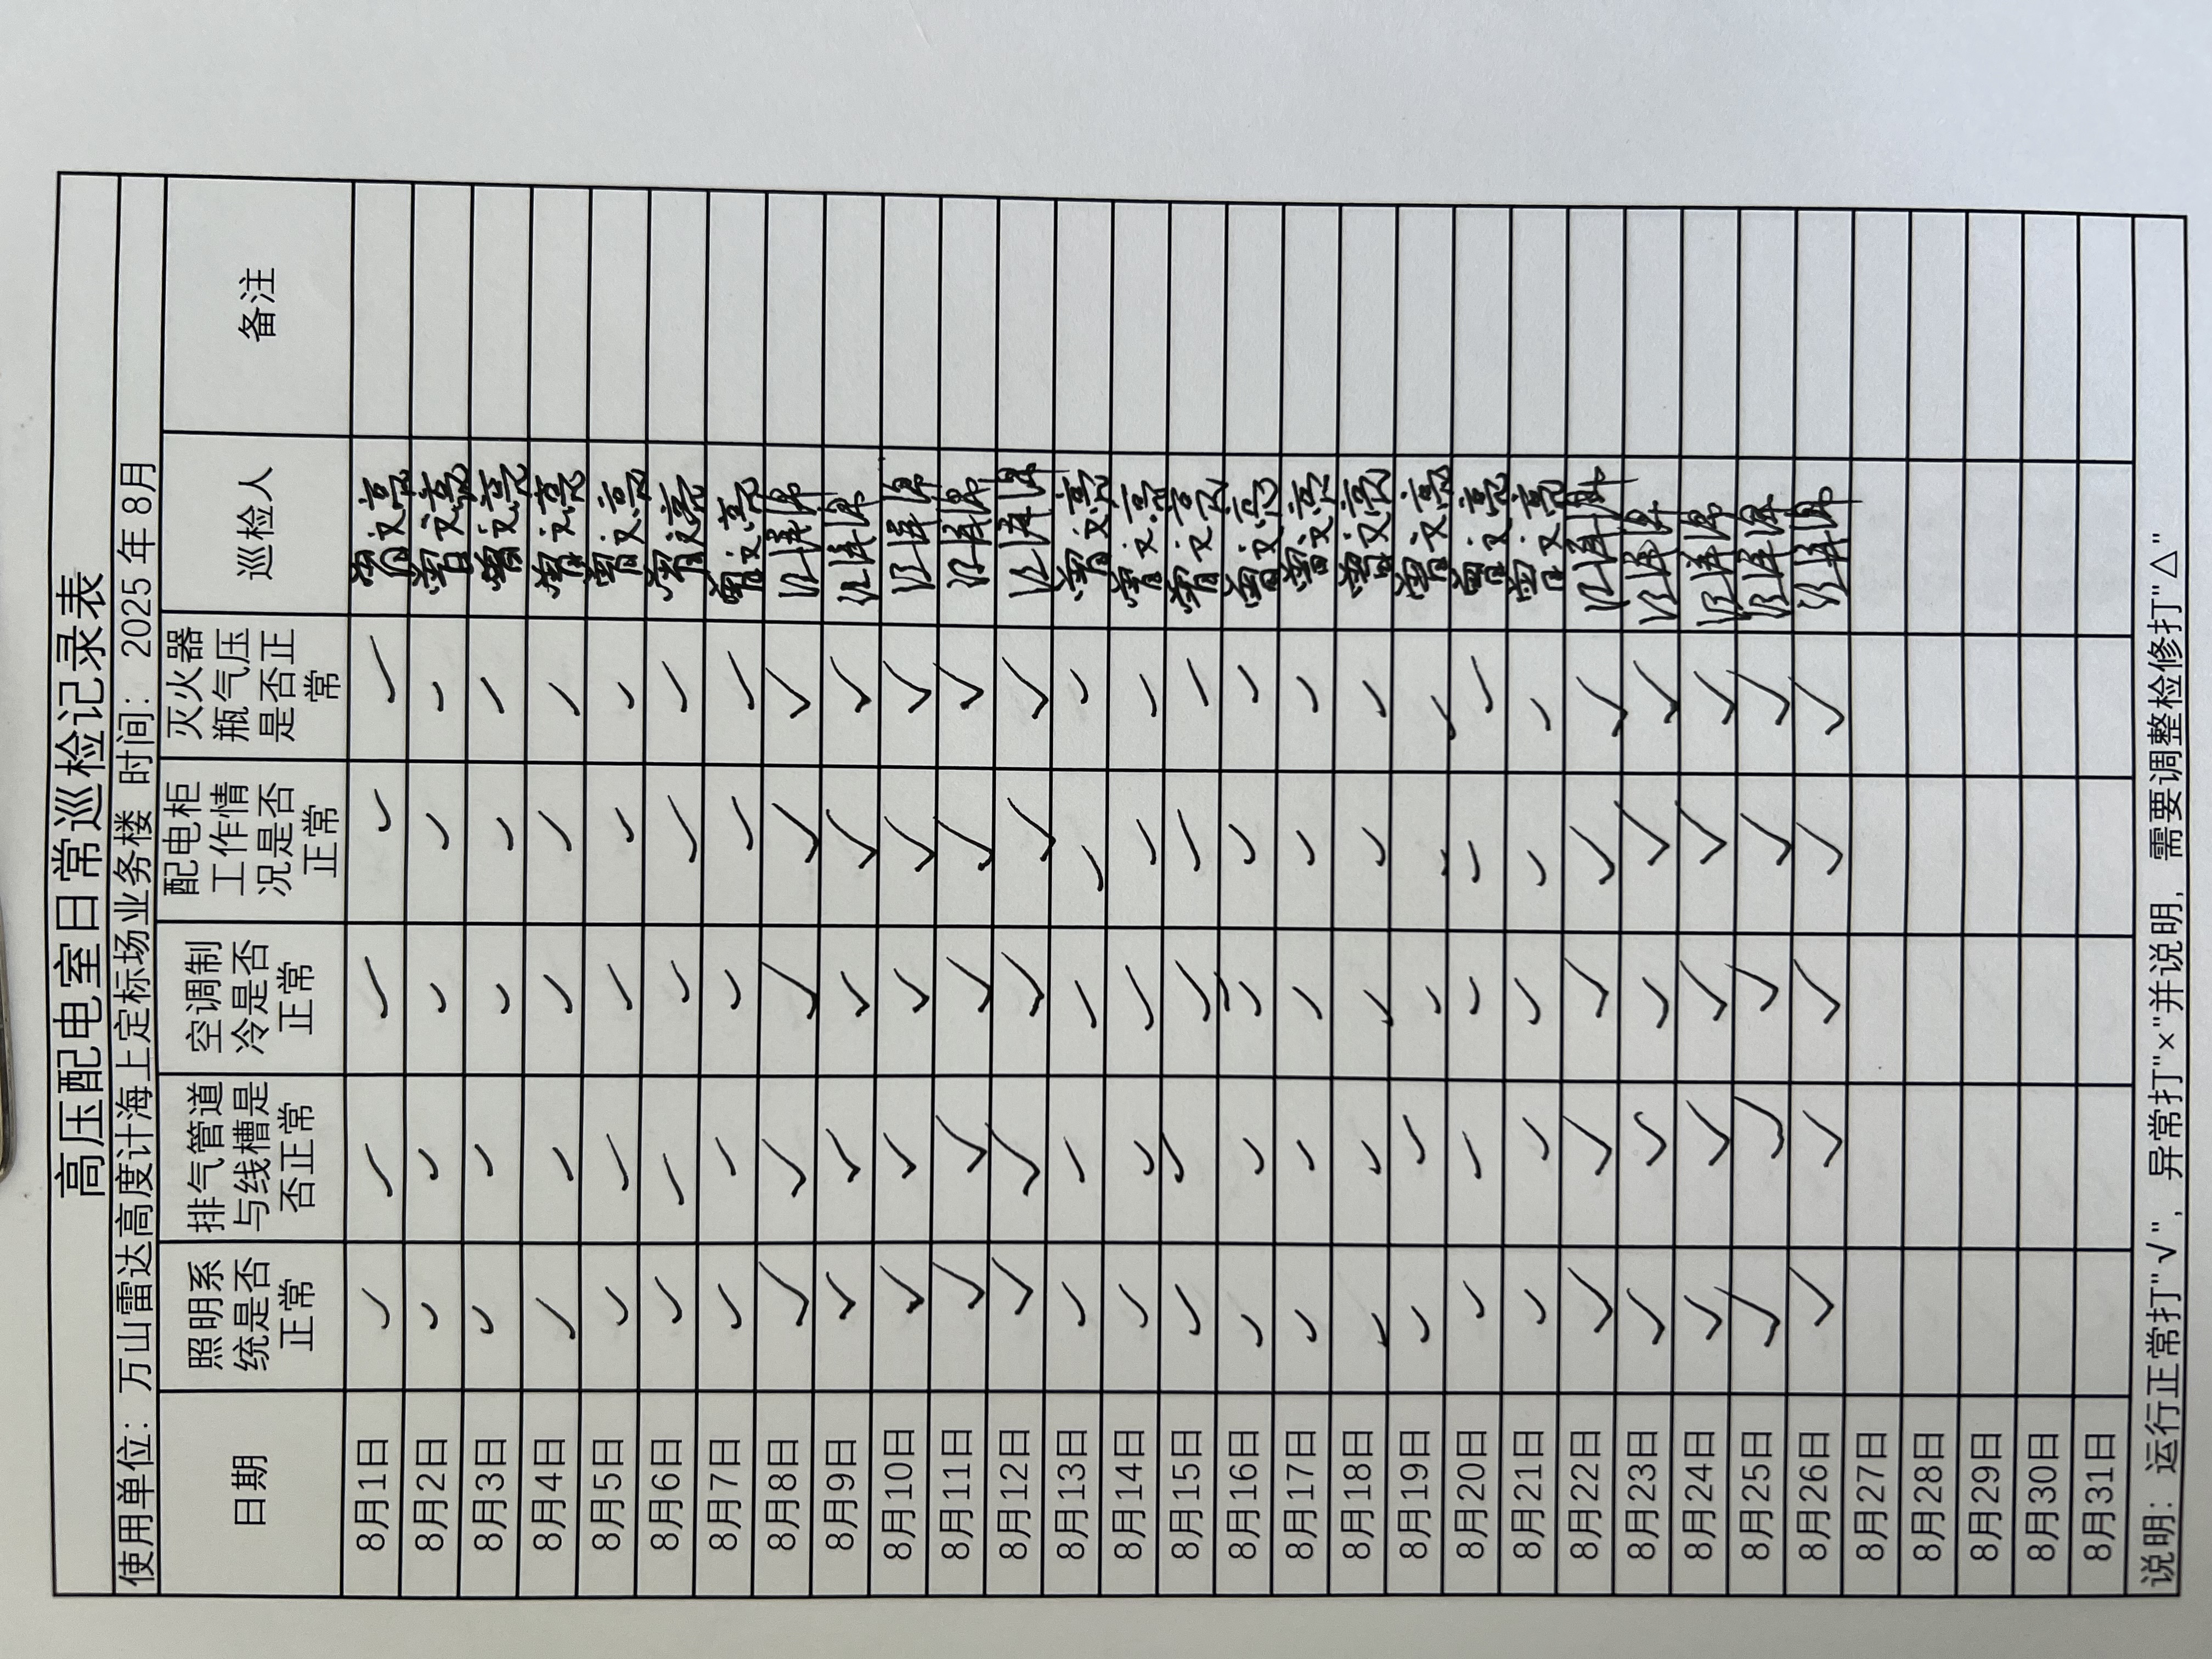 高压配电室日常巡检记录表
使用单位：万山雷达高度计海上定标场业务楼 时间：2025 年 8月
日期
照明系
统是否
正常
排气管道
与线槽是
否正常
空调制
冷是否
正常
配电柜
工作情
况是否
正常
灭火器
瓶气压
是否正
常
巡检人
备注
8月1日 ✓ ✓ ✓ ✓ ✓ 曾文亮
8月2日 ✓ ✓ ✓ ✓ ✓ 曾文亮
8月3日 ✓ ✓ ✓ ✓ ✓ 曾文亮
8月4日 ✓ ✓ ✓ ✓ ✓ 曾文亮
8月5日 ✓ ✓ ✓ ✓ ✓ 曾文亮
8月6日 ✓ ✓ ✓ ✓ ✓ 曾文亮
8月7日 ✓ ✓ ✓ ✓ ✓ 曾文亮
8月8日 ✓ ✓ ✓ ✓ ✓
8月9日 ✓ ✓ ✓ ✓ ✓
8月10日 ✓ ✓ ✓ ✓ ✓
8月11日 ✓ ✓ ✓ ✓ ✓
8月12日 ✓ ✓ ✓ ✓ ✓
8月13日 ✓ ✓ ✓ ✓ ✓ 曾文亮
8月14日 ✓ ✓ ✓ ✓ ✓ 曾文亮
8月15日 ✓ ✓ ✓ ✓ ✓ 曾文亮
8月16日 ✓ ✓ ✓ ✓ ✓ 曾文亮
8月17日 ✓ ✓ ✓ ✓ ✓ 曾文亮
8月18日 ✓ ✓ ✓ ✓ ✓ 曾文亮
8月19日 ✓ ✓ ✓ ✓ ✓ 曾文亮
8月20日 ✓ ✓ ✓ ✓ ✓ 曾文亮
8月21日 ✓ ✓ ✓ ✓ ✓ 曾文亮
8月22日 ✓ ✓ ✓ ✓ ✓
8月23日 ✓ ✓ ✓ ✓ ✓
8月24日 ✓ ✓ ✓ ✓ ✓
8月25日 ✓ ✓ ✓ ✓ ✓
8月26日 ✓ ✓ ✓ ✓ ✓
8月27日
8月28日
8月29日
8月30日
8月31日
说明：运行正常打"√"，异常打"×"并说明，需要调整检修打"△"